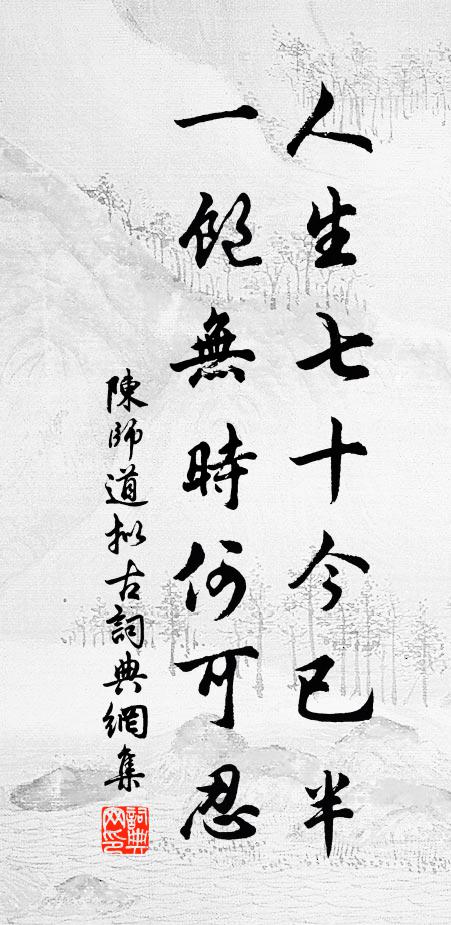 人生七十今已半
一飽無時何可忍
陳師道拟古詞典網集
詞典
网印